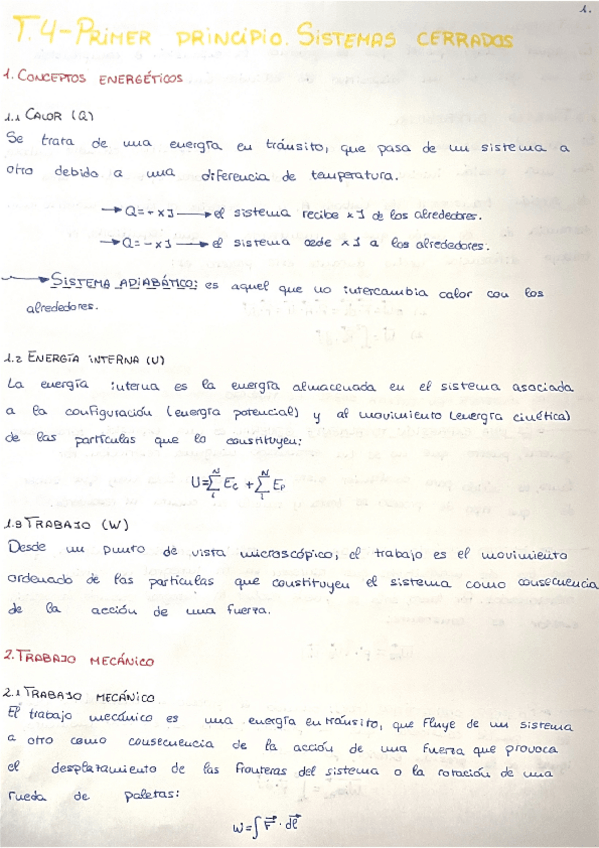 1.
T.4-PRIMER PRINCIPIO. SISTEMAS CERRADOS
1. CONCEPTOS ENERGÉTICOS
1.1 CALOR (Q)
Se trata de una energía en tránsito, que pasa de un sistema a
otro debido a una diferencia de temperatura.
→ Q = + x J → el sistema recibe x J de los alrededores.
→ Q = - x J → el sistema cede x J a los alrededores.
→ SISTEMA ADIABÁTICO: es aquel que no intercambia calor con los
alrededores.
1.2 ENERGÍA INTERNA (U)
La energía interna es la energía almacenada en el sistema asociada
a la configuración (energía potencial) y al movimiento (energía cinética)
de las partículas que lo constituyen:
U = ∑ᵢᴺ Ec + ∑ᵢᴺ Ep
1.3 TRABAJO (W)
Desde un punto de vista microscópico, el trabajo es el movimiento
ordenado de las partículas que constituyen el sistema como consecuencia
de la acción de una fuerza.
2. TRABAJO MECÁNICO
2.1 TRABAJO MECÁNICO
El trabajo mecánico es una energía en tránsito, que fluye de un sistema
a otro como consecuencia de la acción de una fuerza que provoca
el desplazamiento de las fronteras del sistema o la rotación de una
rueda de paletas:
W = ∫ F⃗ · dl⃗